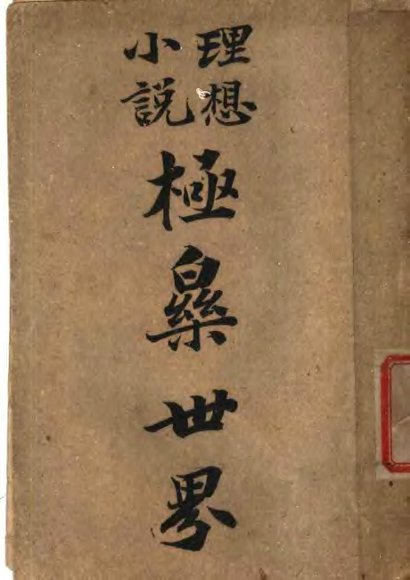 理想
小説
極樂世界